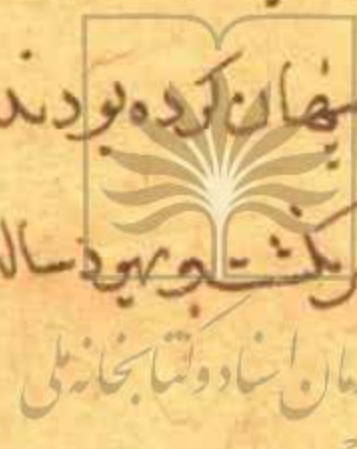 پنهان کرده بودند
بکشت و یهود
مان اسناد و کتابخانه ملی